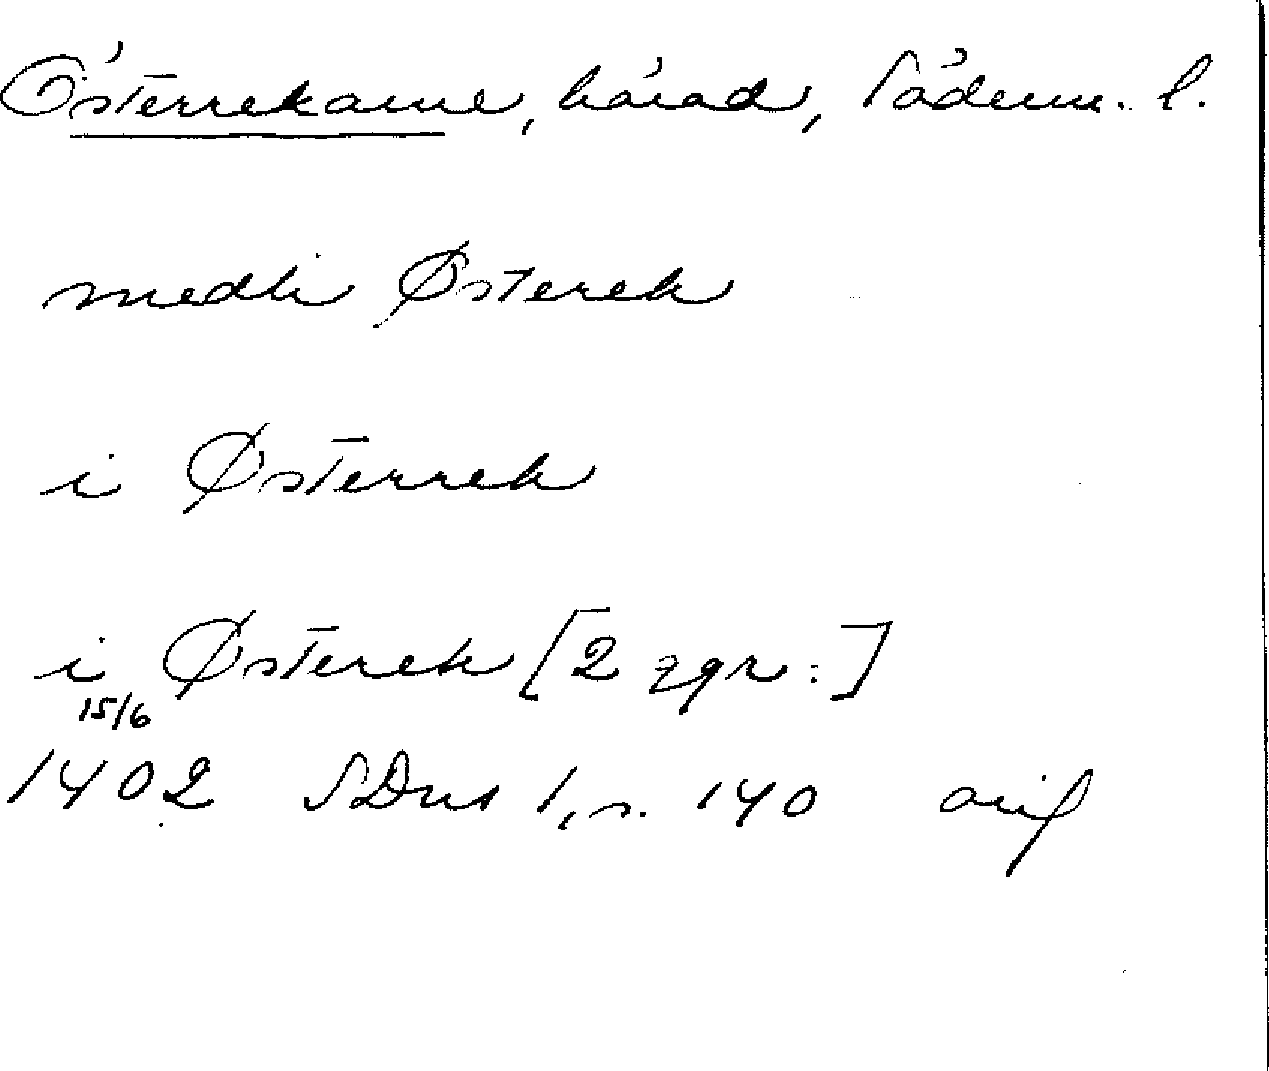 Österrekarne, härad, Söderm. l.
medh Østerek
i Østerrek
i Østerek [2 ggr.]
15/6
1402 SDns 1, s. 140 orig